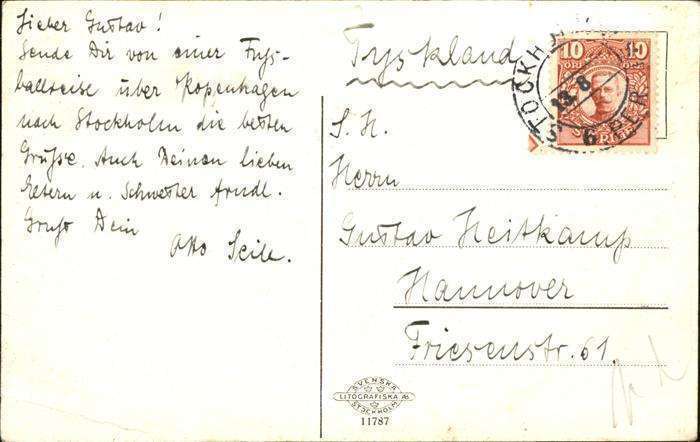 Lieber Gustav!
Sende Dir von einer Fuß-
ballreise über Kopenhagen
nach Stockholm die besten
Grüße. Auch Deinen lieben
Eltern u. Schwester frndl.
Gruß Dein
Otto
Tyskland
10 10
STOCKHOLM
13.8
6
S. H.
Herrn
Gustav Heitkamp
Hannover
Friesenstr. 61.
SVENSKA
LITOGRAFISKA AB
STOCKHOLM
11787